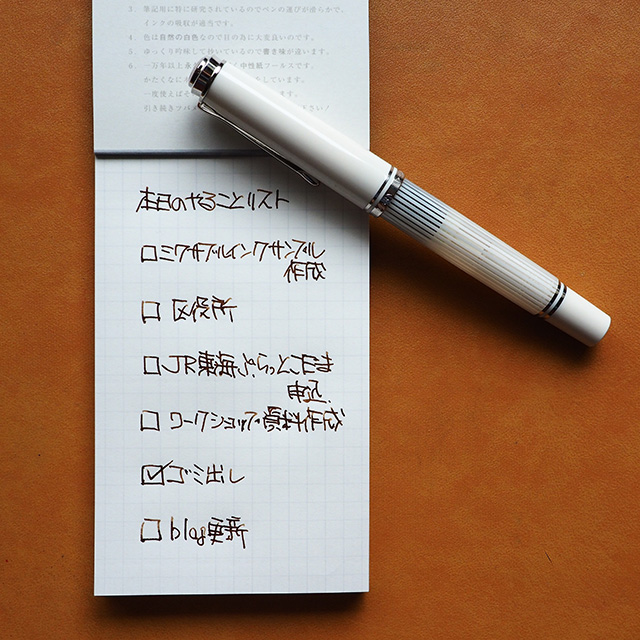 3. 筆記用に特に研究されているのでペンの運びが滑らかで、
インクの吸収が適当です。
4. 色は自然の白色なので目の為に大変良いのです。
5. ゆっくり吟味して抄いているので書き味が違います。
6. 一万年以上永 中性紙フールスです。
かたくなに しています。
一度使えばそ ます。
引き続きツバメ ださい！
本日のやることリスト
□ミワサブルインクサンプル
作成
□ 区役所
□JR東海ぷらっとこだま
申込
□ ワークショップ資料作成
☑ゴミ出し
□ blog更新